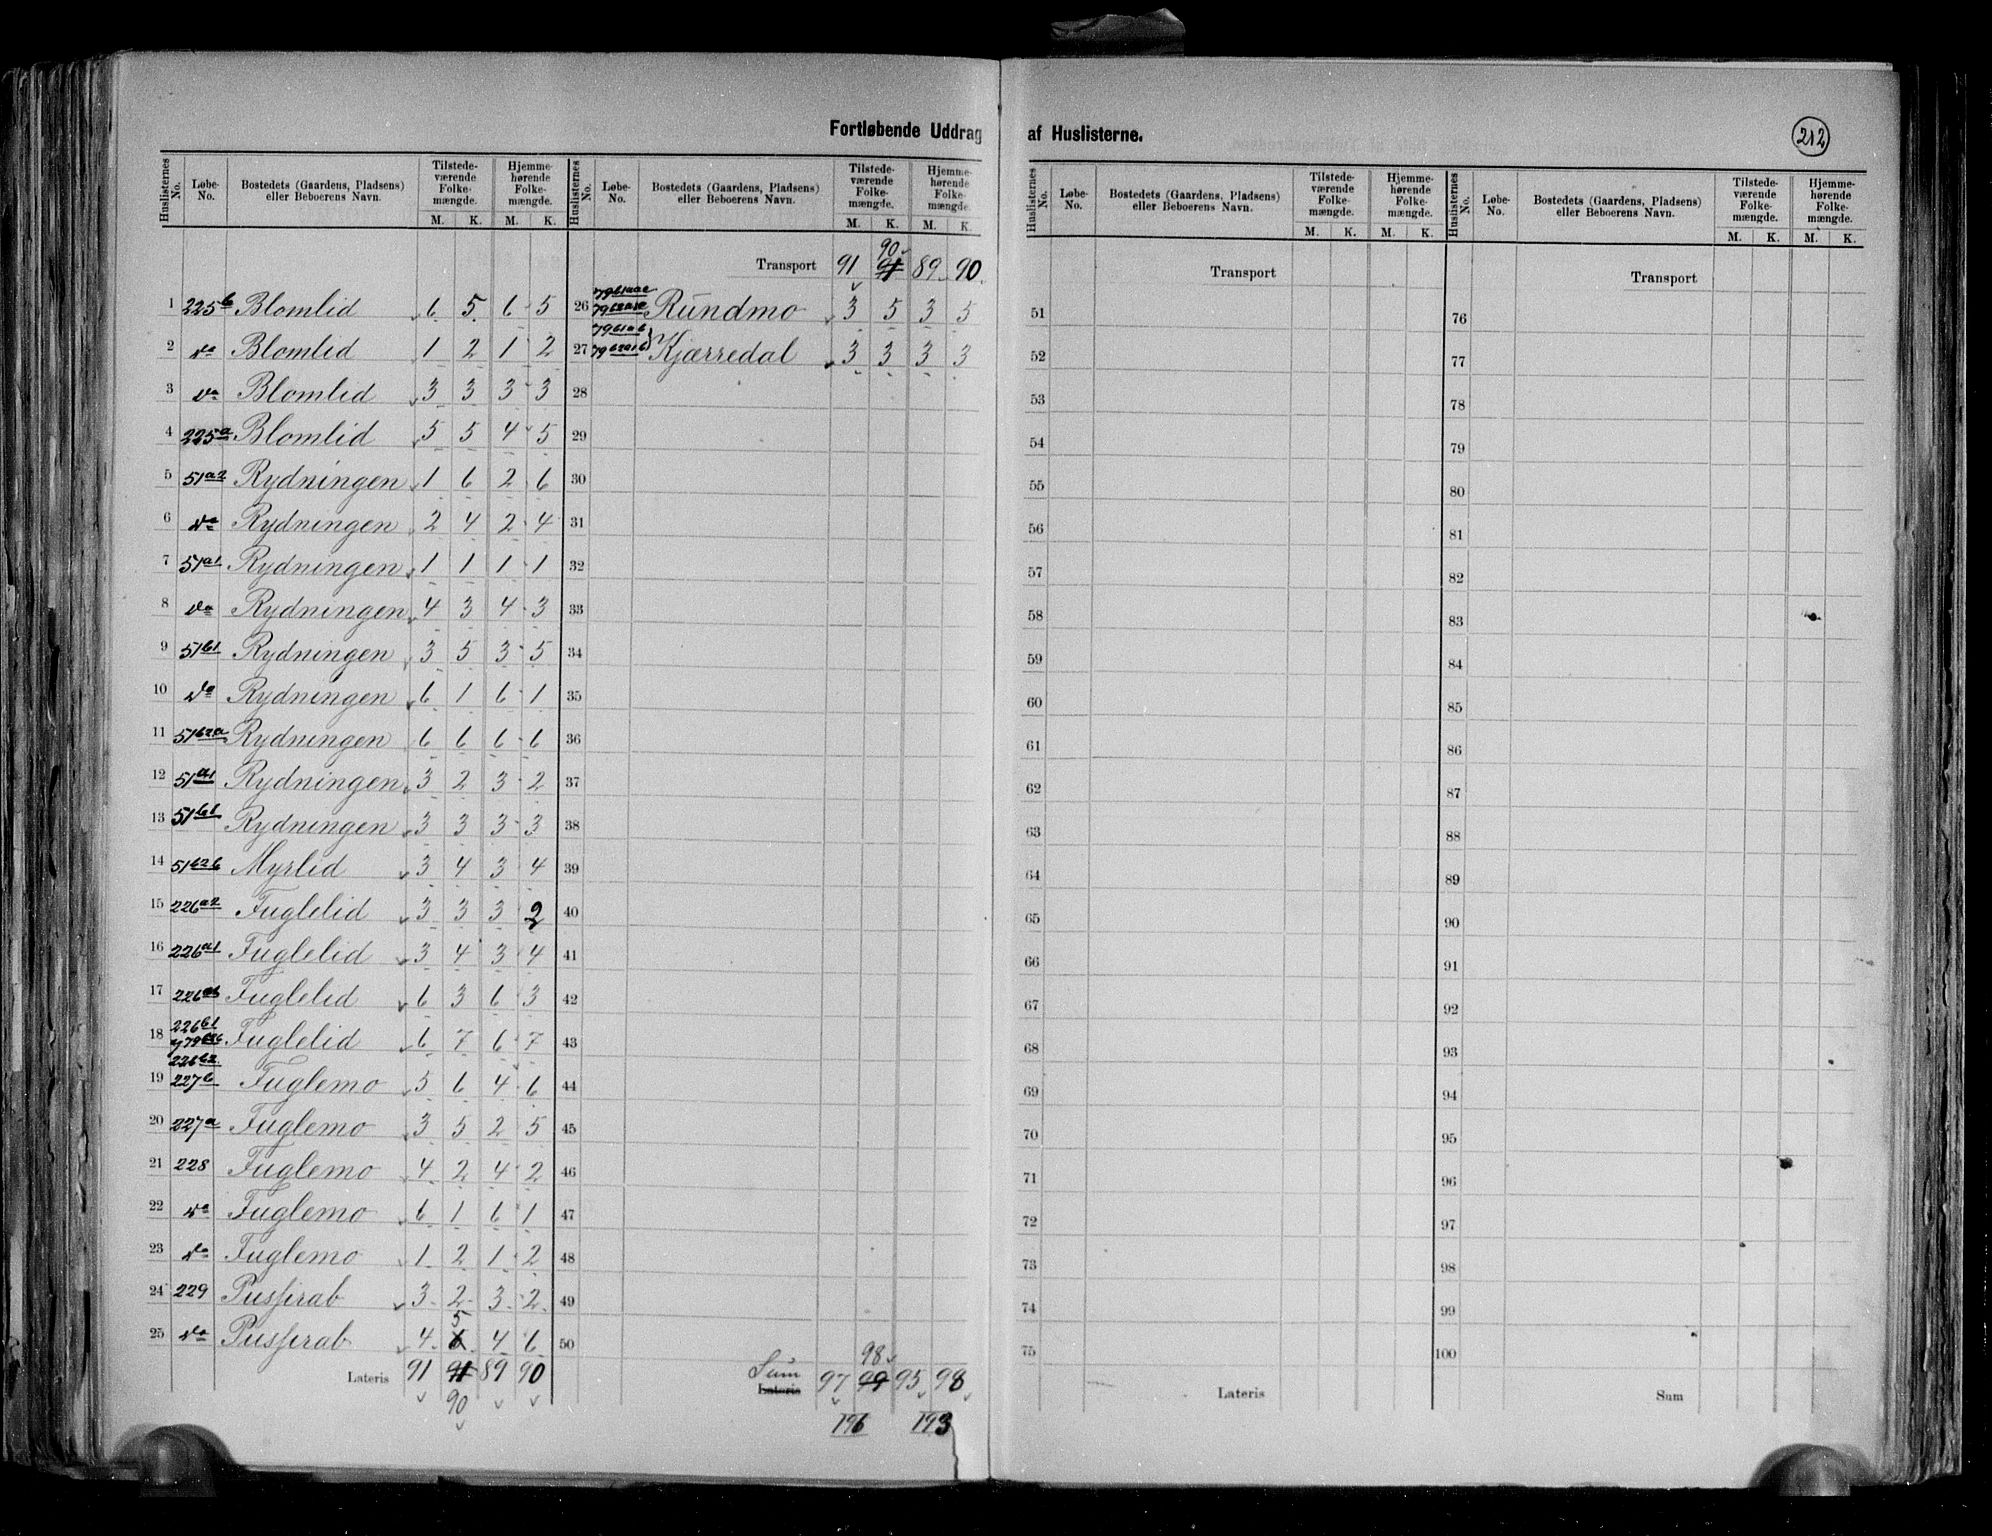 Fortløbende Uddrag af Huslisterne.
212
Huslisternes No. Løbe-No. Bostedets (Gaardens, Pladsens) eller Beboerens Navn. Tilstedeværende Folkemængde. M. K. Hjemmehørende Folkemængde. M. K.
1 225b Blomlid 6 5 6 5
2 do Blomlid 1 2 1 2
3 do Blomlid 3 3 3 3
4 225a Blomlid 5 5 4 5
5 51a2 Rydningen 1 6 2 6
6 do Rydningen 2 4 2 4
7 51a1 Rydningen 1 1 1 1
8 do Rydningen 4 3 4 3
9 51b1 Rydningen 3 5 3 5
10 do Rydningen 6 1 6 1
11 51b2a Rydningen 6 6 6 6
12 51a1 Rydningen 3 2 3 2
13 51b1 Rydningen 3 3 3 3
14 51b2b Myrlid 3 4 3 4
15 226a2 Fuglelid 3 3 3 2
16 226a1 Fuglelid 3 4 3 4
17 226 Fuglelid 6 3 6 3
18 226b1 226b2 Fuglelid 6 7 6 7
19 227b Fuglemo 5 6 4 6
20 227a Fuglemo 3 5 2 5
21 228 Fuglemo 4 2 4 2
22 do Fuglemo 6 1 6 1
23 do Fuglemo 1 2 1 2
24 229 Pusjirab 3 2 3 2
25 do Pusjirab 4 6 5 4 6
Lateris 91 91 89 90
90
Huslisternes No. Løbe-No. Bostedets (Gaardens, Pladsens) eller Beboerens Navn. Tilstedeværende Folkemængde. M. K. Hjemmehørende Folkemængde. M. K.
90
Transport 91 91 89 90
26 Rundmo 3 5 3 5
27 Kjærredal 3 3 3 3
28
29
30
31
32
33
34
35
36
37
38
39
40
41
42
43
44
45
46
47
48
49
50
98
Sum Lateris 97 99 95 98
196 193
Huslisternes No. Løbe-No. Bostedets (Gaardens, Pladsens) eller Beboerens Navn. Tilstedeværende Folkemængde. M. K. Hjemmehørende Folkemængde. M. K.
Transport
51
52
53
54
55
56
57
58
59
60
61
62
63
64
65
66
67
68
69
70
71
72
73
74
75
Lateris
Huslisternes No. Løbe-No. Bostedets (Gaardens, Pladsens) eller Beboerens Navn. Tilstedeværende Folkemængde. M. K. Hjemmehørende Folkemængde. M. K.
Transport
76
77
78
79
80
81
82
83
84
85
86
87
88
89
90
91
92
93
94
95
96
97
98
99
100
Sum